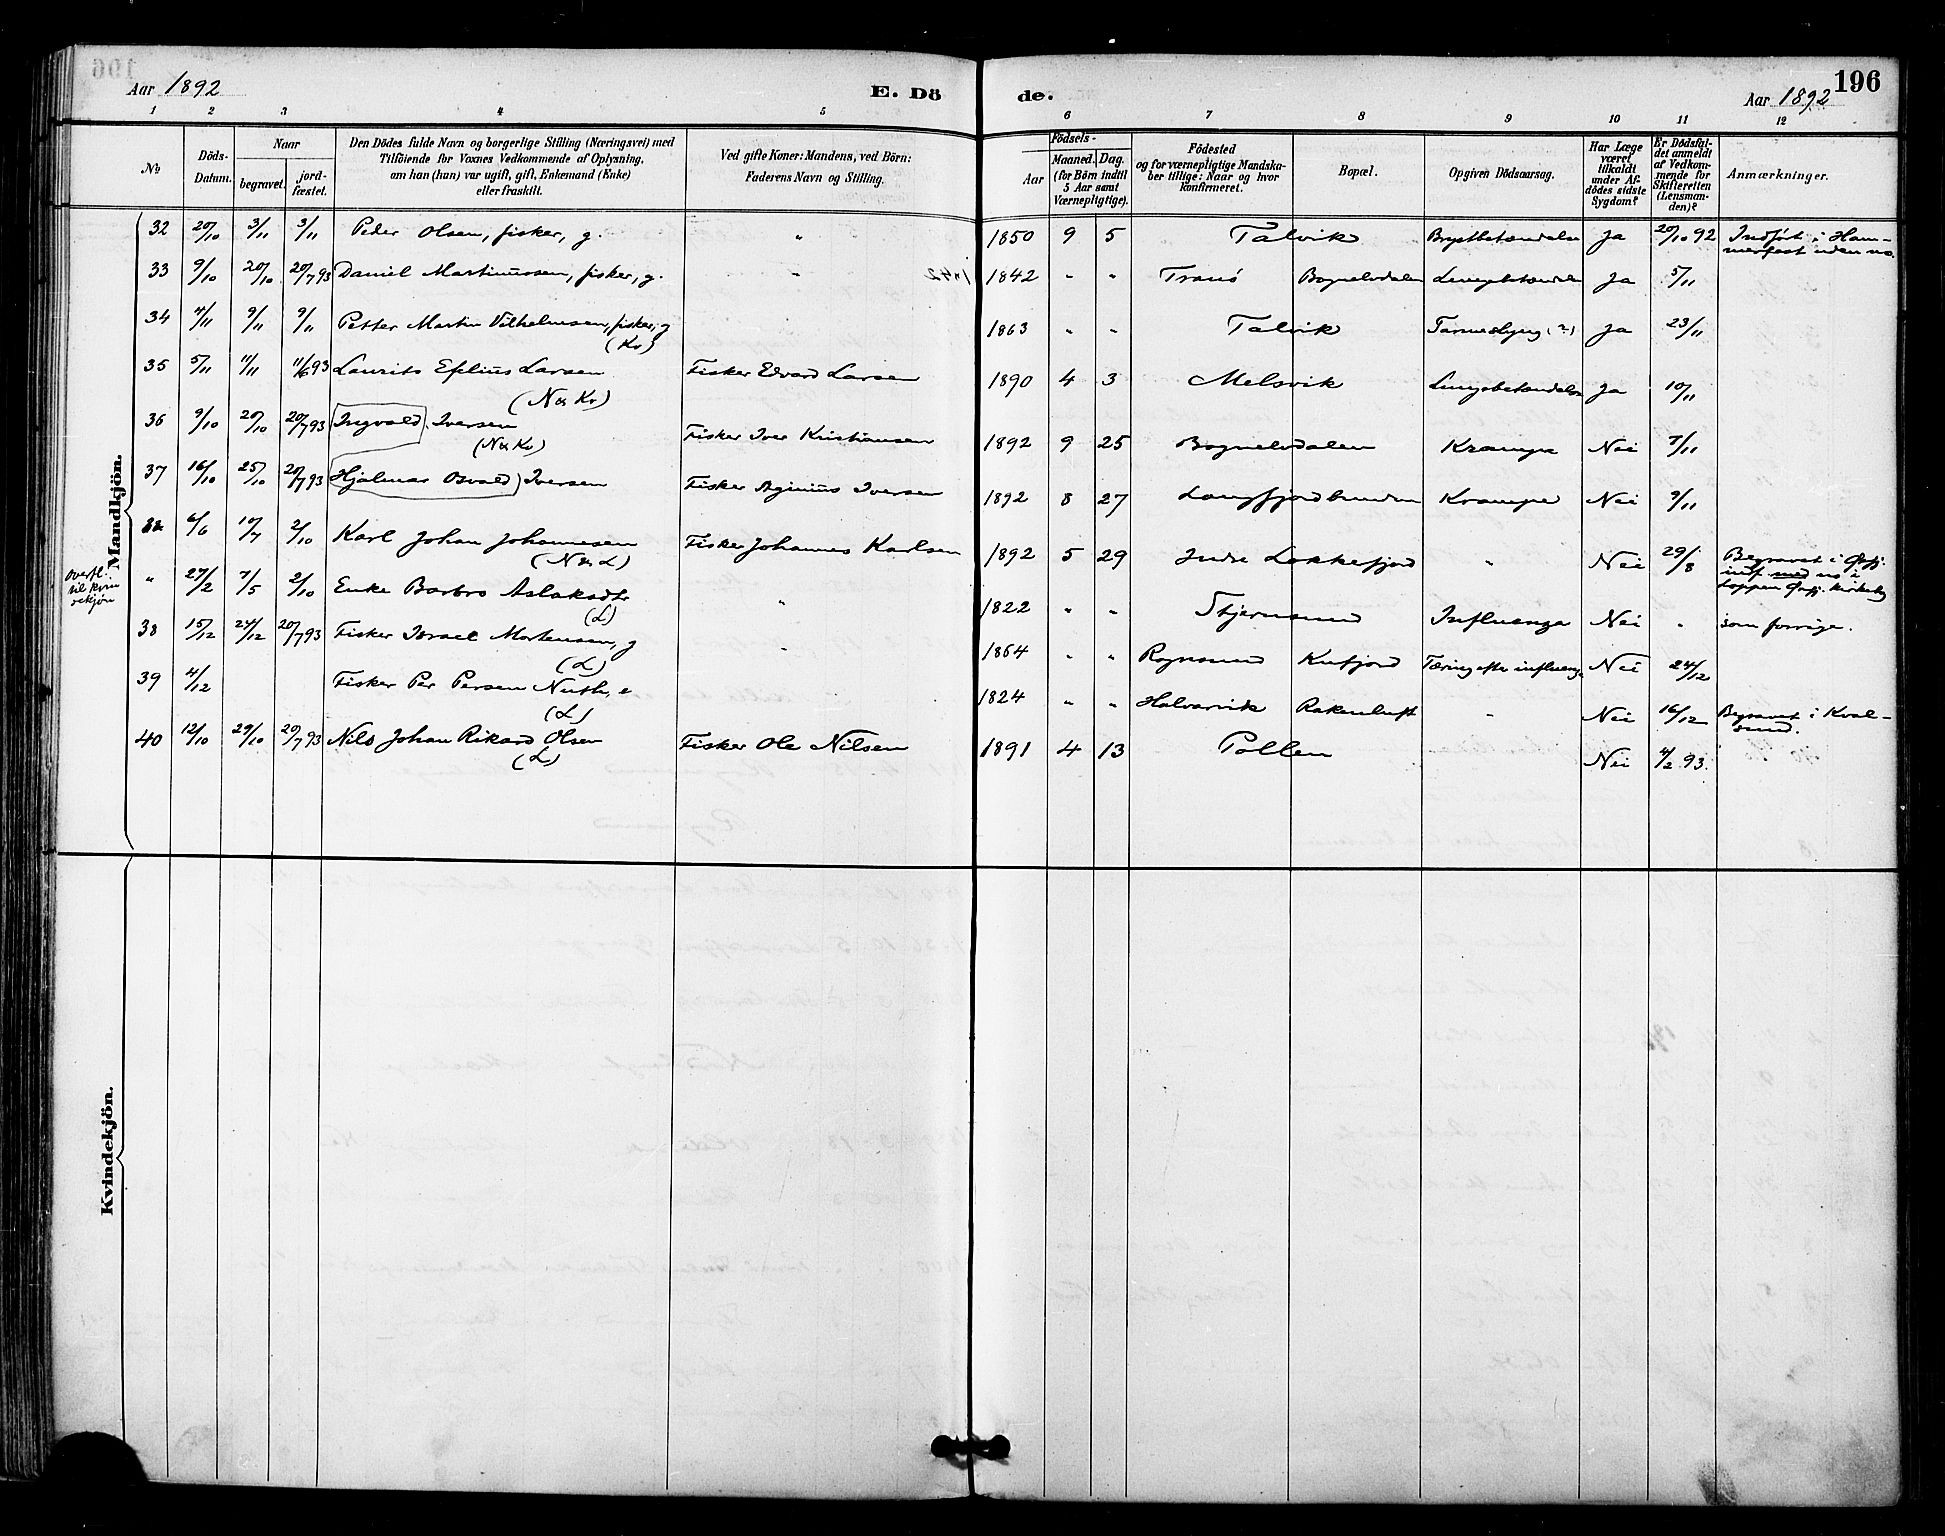 Aar 1892 E. Dö de. Aar 1892 196
1 2 3 4 5 6 7 8 9 10 11 12
No
Döds-Datum.
Naar
begravet.
jord-fæstet.
Den Dödes fulde Navn og borgerlige Stilling (Næringsvei) med
Tilföiende for Voxnes Vedkommende af Oplysning,
om han (hun) var ugift, gift, Enkemand (Enke)
eller fraskilt.
Ved gifte Koner: Mandens, ved Börn:
Faderens Navn og Stilling.
Födsels-
Aar
Maaned. Dag.
(for Börn indtil
5 Aar samt
Værnepligtige).
Födested
og for værnepligtige Mandska-
ber tillige: Naar og hvor
konfirmeret.
Bopæl.
Opgiven Dödsaarsag.
Har Læge
været
tilkaldt
under Af-
dödes sidste
Sygdom?
Er Dödsfal-
det anmeldt
af Vedkom-
mende for
Skifteretten
(Lensman-
den)?
Anmærkninger.
Mandkjön.
32 20/10 3/11 3/11 Peder Olsen, fisker, g. " 1850 9 5 Talvik Brystbetændelse Ja 20/10 92 Indført i Ham-
merfest uden no.
33 9/10 20/10 20/7 93 Daniel Martinussen, fisker, g. " 1842 " " Tranö Bognelvdalen Lungebetændelse Ja 5/11
34 4/11 9/11 9/11 Petter Martin Vilhelmsen, fisker, g
(Kv) 1863 " " Talvik Tarmeslyng (?) Ja 23/11
35 5/11 11/11 11/6 93 Laurits Efelius Larsen
(N & Kv) Fisker Edvard Larsen 1890 4 3 Melsvik Lungebetændelse Ja 10/11
36 9/10 20/10 20/7 93 Ingvald Iversen
(N & Kv) Fisker Iver Kristiansen 1892 9 25 Bognelvdalen Krampe Nei 7/11
37 16/10 25/10 20/7 93 Hjalmar Osvald Iversen Fisker Aginius Iversen 1892 8 27 Langfjordbunden Krampe Nei 9/11
6/6 10/7 2/10 Karl Johan Johannesen
(N & L) Fisker Johannes Karlsen 1892 5 29 Indre Lokkefjord " Nei 29/8 Begravet i Øxfj.
indf med no i
Loppen Øxfj. kirkebog
overf.
til kvin
dekjøn
" 27/2 7/5 2/10 Enke Barbro Aslaksdtr
(L) " 1822 " " Stjernsund Influenza Nei " som forrige.
38 15/12 24/12 20/7 93 Fisker Israel Mortensen, g
(L) " 1864 " " Rognsund Kufjord Tæring efter influenza Nei 24/12
39 4/12 Fisker Per Persen Nuth, e
(L) 1824 " " Halvarvik Rakenluft " Nei 16/12 Begravet i Kval-
sund.
40 12/10 29/10 20/7 93 Nils Johan Rikard Olsen
(L) Fisker Ole Nilsen 1891 4 13 Pollen Nei 4/2 93.
Kvindekjön.